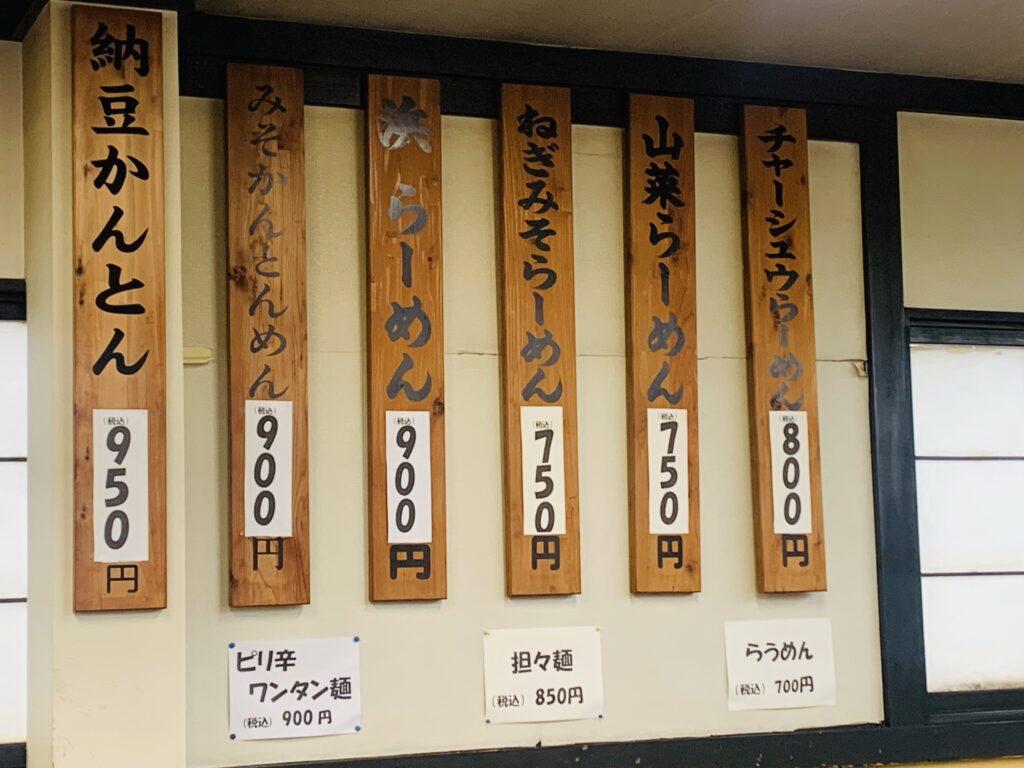 納豆かんとん
(税込)
950
円
みそかんとんめん
(税込)
900
円
浜らーめん
(税込)
900
円
ねぎみそらーめん
(税込)
750
円
山菜らーめん
(税込)
750
円
チャーシュウらーめん
(税込)
800
円
ピリ辛
ワンタン麺
(税込) 900円
担々麺
(税込) 850円
らうめん
(税込) 700円